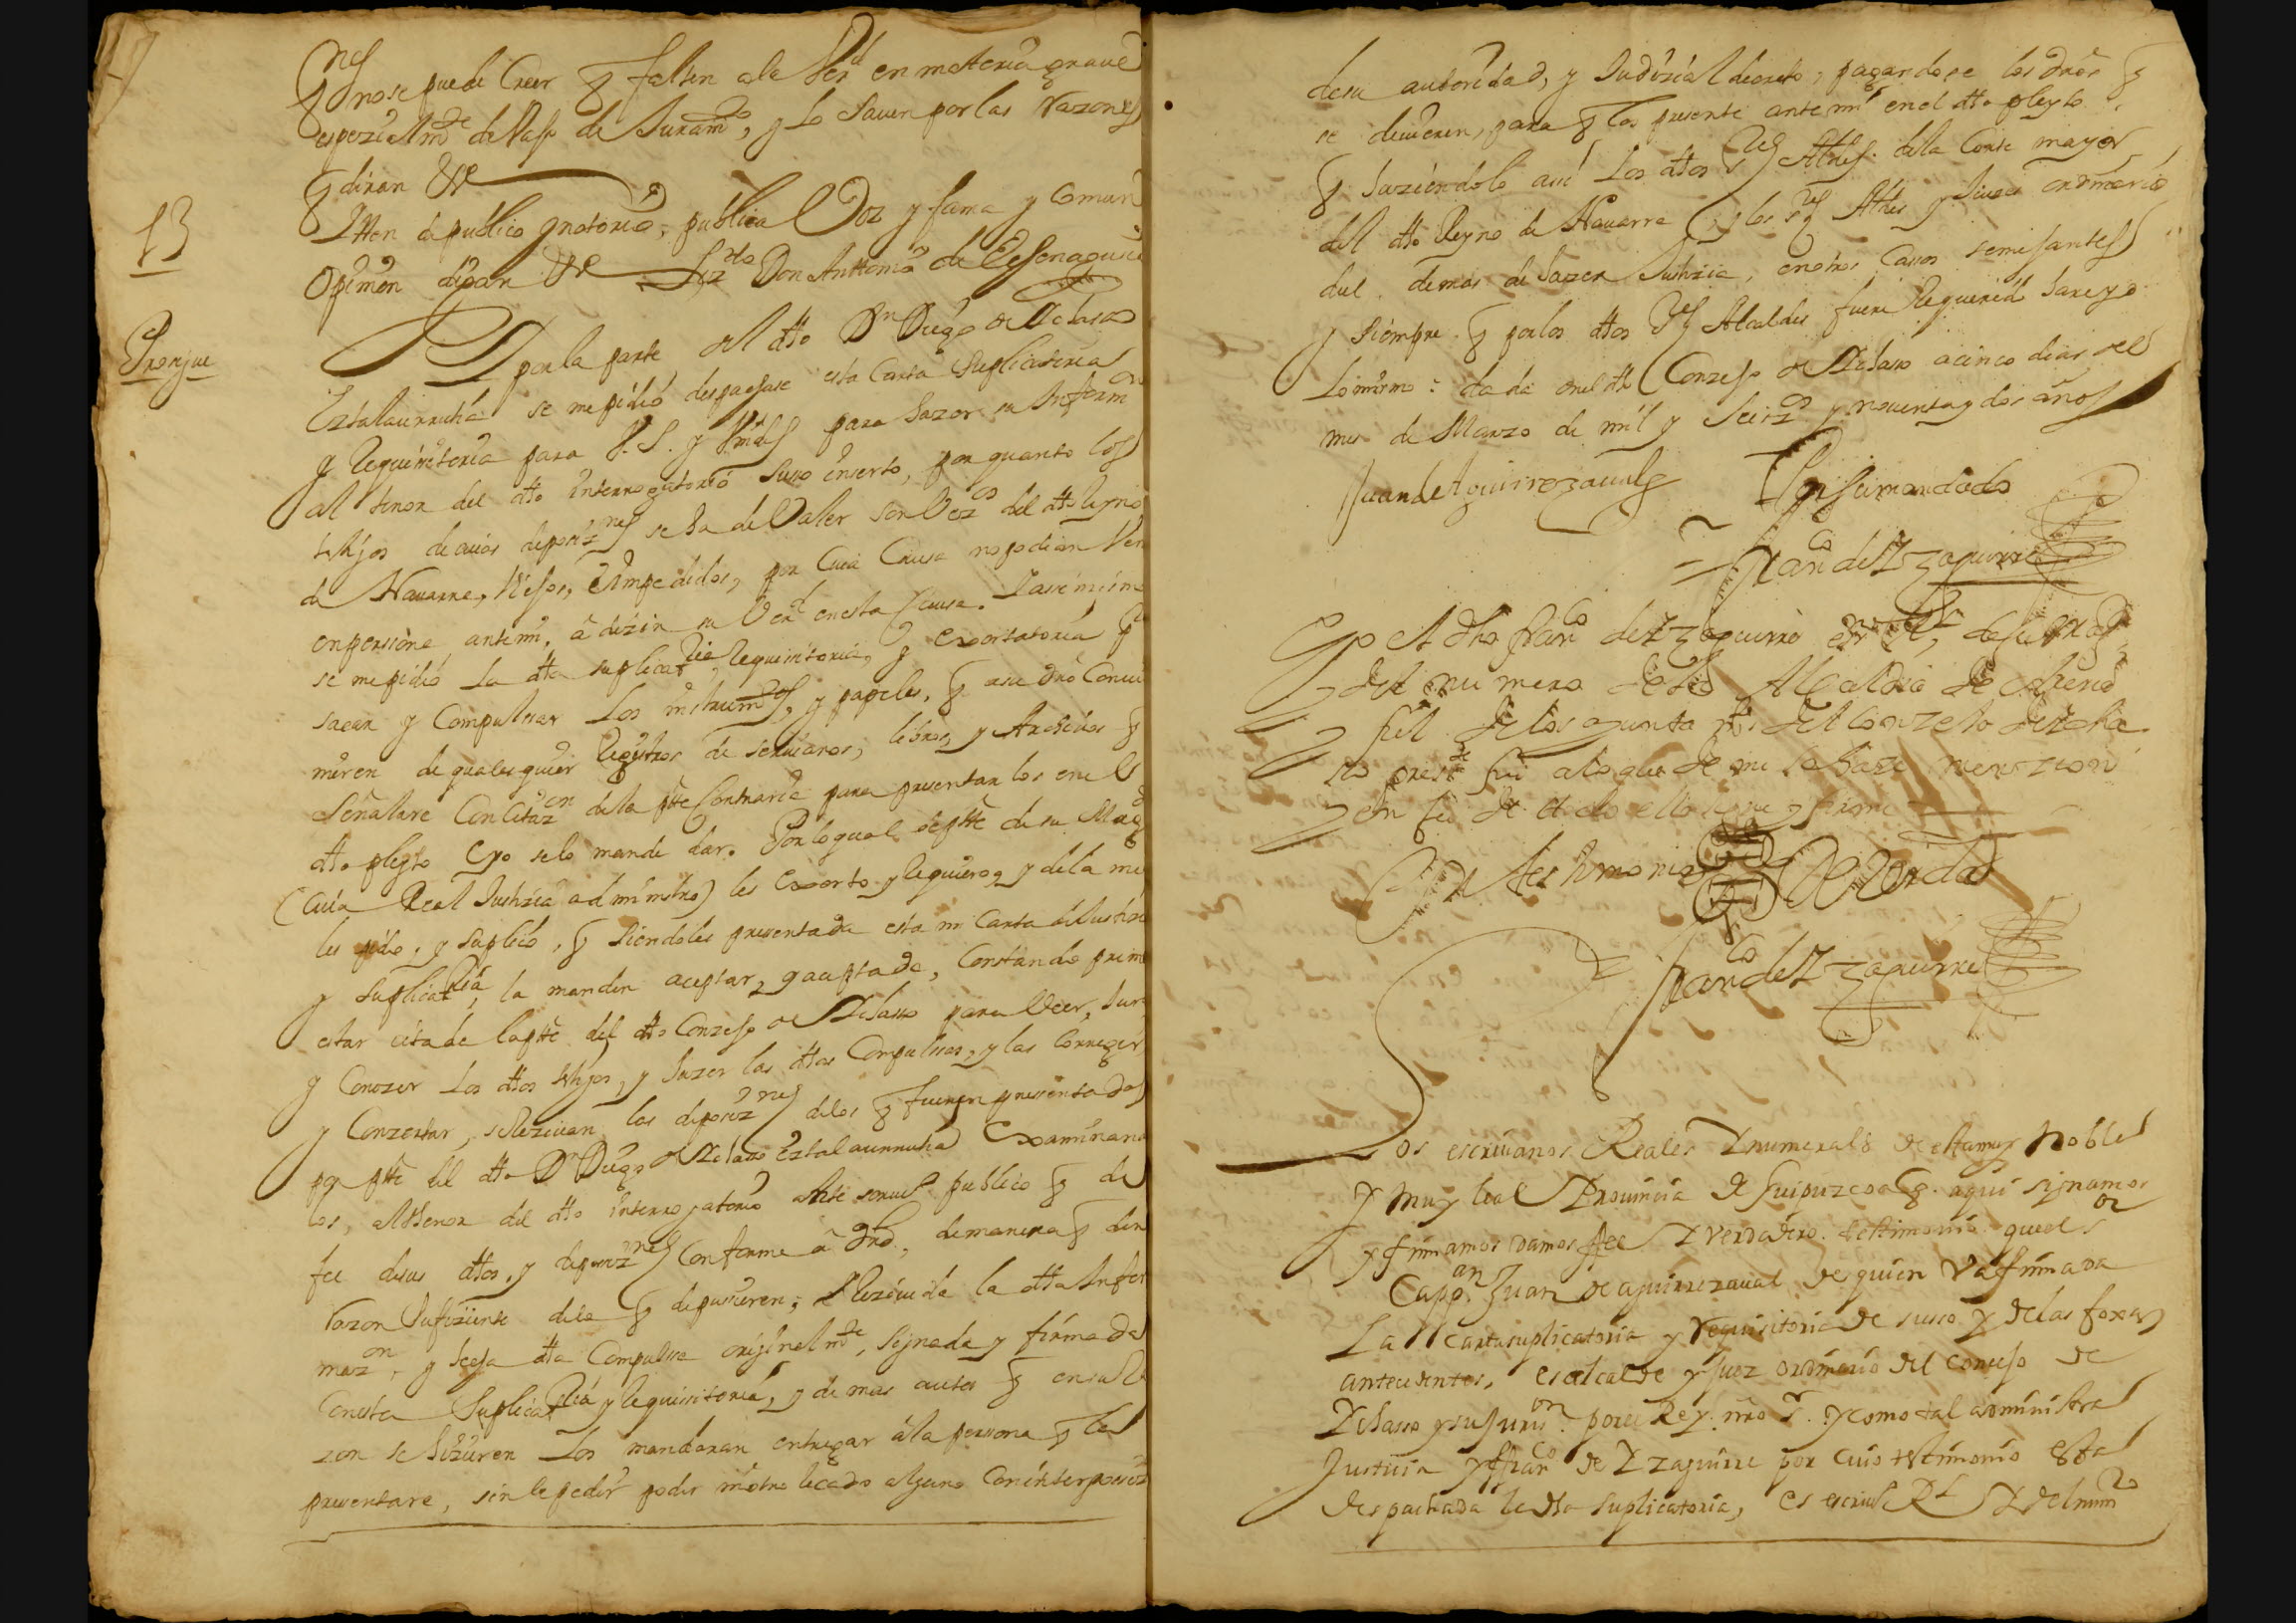 q no se puede Creer q falten a la Verd en materia graue
espezialmte devajo de Juramto, y lo sauen por las razones
q diran &c
13
Itten de publico y notorio, publica Voz y fama y Comun
opinion digan &c Lizdo Don Anttonio de
Pronjue
Y por la parte del dho Dn Diego de Ydiasso
se me pidió despachase esta Carta Suplicatoria
y Requisitoria para V.S. y Vmds para hazer su Inform on
al tenor del dho interrogatorio suso inserto, por quanto los
thigos de cuias depoziznes se ha de Valer son Vezos del dho Reyno
de Nauarra, Viejos, è impedidos, por cuia Causa no podian Ven
en persona ante mi, à dezir su Verd en esta Causa. Y asi mismo
se me pidió la dha suplicatria, Requisitoria, y exortatoria pa
sacar y Compulsar los instrumtos, y papeles, q a su dro Conui
nieren de qualesquier registros de scriuanos, libros, y Archiuos q
señalare Con Citazon de la pte Contraria para presentar los en el
dho pleyto Y yo se lo mandé dar. Por lo qual de pte de su Magd
(Cuia Real Justizia administro) les exorto y requiero, y de la mia
les pido, y suplico, q siendoles presentada esta mi Carta de Justizia
y Suplicatria, la manden aceptar, y aceptada, Constando primo
estar citada la pte del dho Conzejo de Ydiasso para Veer, Jurar
y Conozer los dhos thigos, y hazer las dhas Compulsas, y las Corregir
y Conzertar, se rezivan las depoziznes de los q fueren presentados
por pte del dho Dn Diego de Ydiasso Examinando
los, al thenor del dho interrogatorio ante scriuo publico q de
fee de sus dhos, y depoziznes Conforme à dro, de manera q den
razon sufiziente de lo q depusieren; y Rezivida la dha Infor
mazon, y hecha dha Compulsa originalmte, signada y firmada
Con esta Suplicatria y Requisitoria, y demas autos q en su
zon se hizieren los mandaran entregar à la persona q la
presentare, sin le pedir poder ni otro recado alguno Con interposizon
de su autoridad, y Judizial decreto, pagandose los dros q
se deuieren, para q los presente ante mi en el dho pleyto.
q haziendolo asi los dhos Sres Alldes de la Corte mayor
del dho Reyno de Nauarra y los Sres Alldes y Juezes ordinarios
del demas de hazer Justizia, en otros Casos semejantes
y siempre q por los dhos Sres Alcaldes fuere Requerido hare yo
lo mismo: dada en el dho Conzejo de Ydiasso a cinco dias del
mes de Marzo de mil y Seiszos y nouenta y dos años
Juan de Aguirrezauala
Por su mandado
Franco de Yzaguirre
Yo el dho Franco de Yzaguirre de su Magd
y del numero de la Alcaldia de
fiel de los ayuntamtos del conzejo de Ydia
so preste fui a lo que de mi se haze menzion
y en fee de ello signe y firme
En testimonio de Verdad
Franco de Yzaguirre
Los escriuanos Reales Y numerales de esta muy Noble
Y muy leal Prouincia de Guipuzcoa q. aqui signamos
y firmamos damos fee Y verdadero testimonio que el Sor
Cappan Juan de aguirrezaual de quien va firmada
La Carta suplicatoria y Requisitoria de suso y de las foxas
antecedentes, es alcalde y Juez ordinario del conzejo de
Ydiasso y su Jurison por el Rey nro Sr. y como tal administra
Justicia Y Franco de Yzaguirre por cuio testimonio esta
Despachada la dha suplicatoria, es escriuo Rl Y del numo